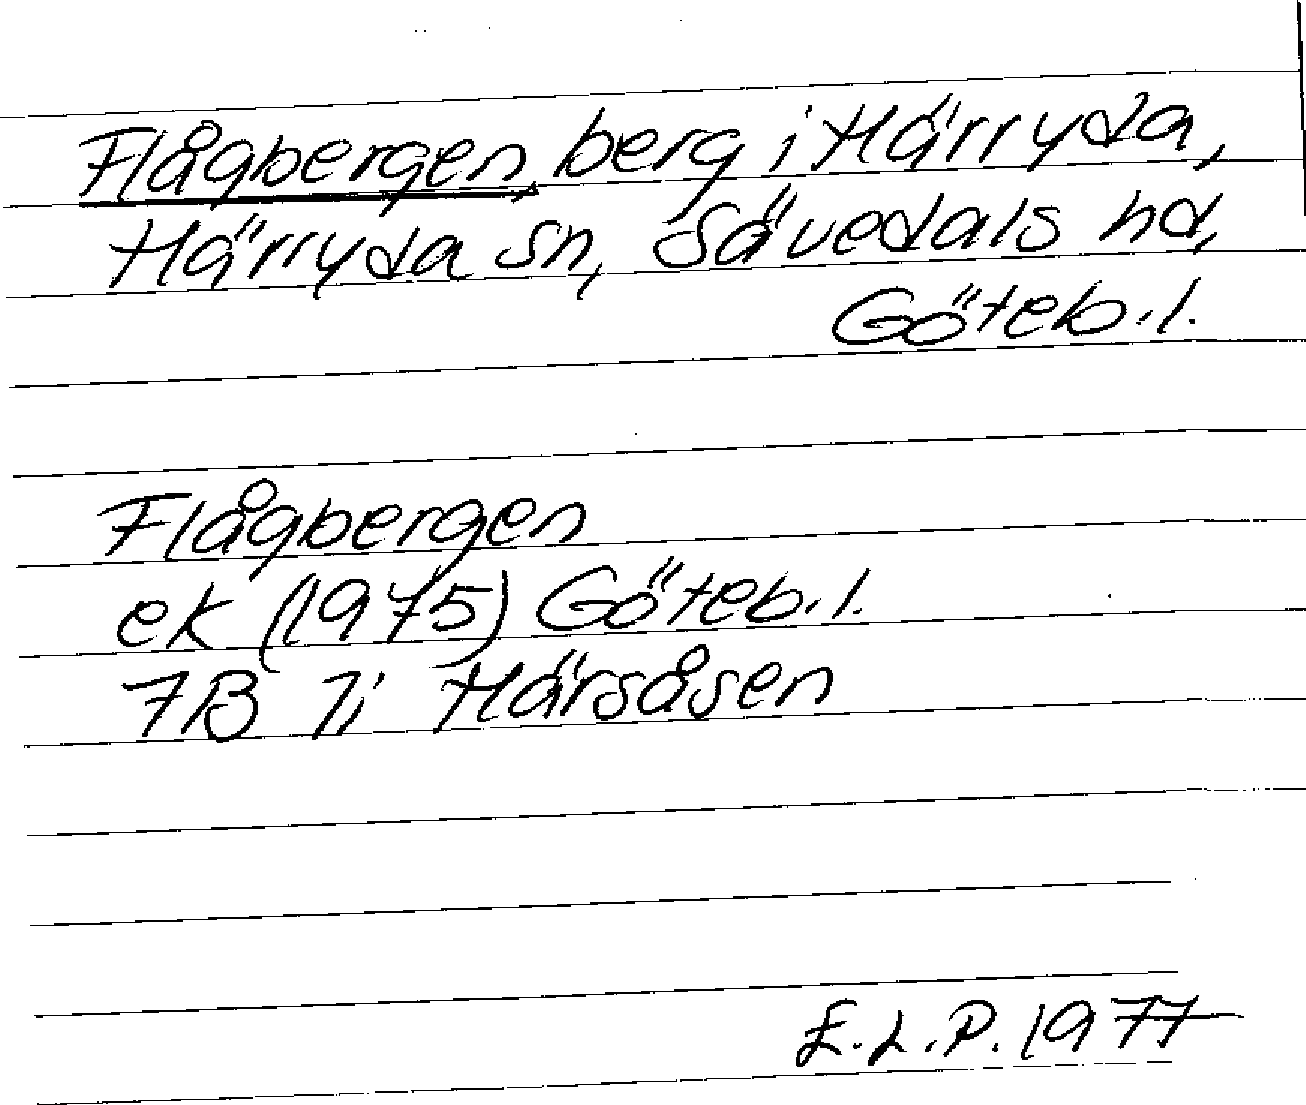 Flågbergen, berg i Härryda,
Härryda sn, Sävedals hd,
Göteb. l.
Flågbergen
ek (1975) Göteb. l.
7B 7i Härsåsen
E.L.P. 1977